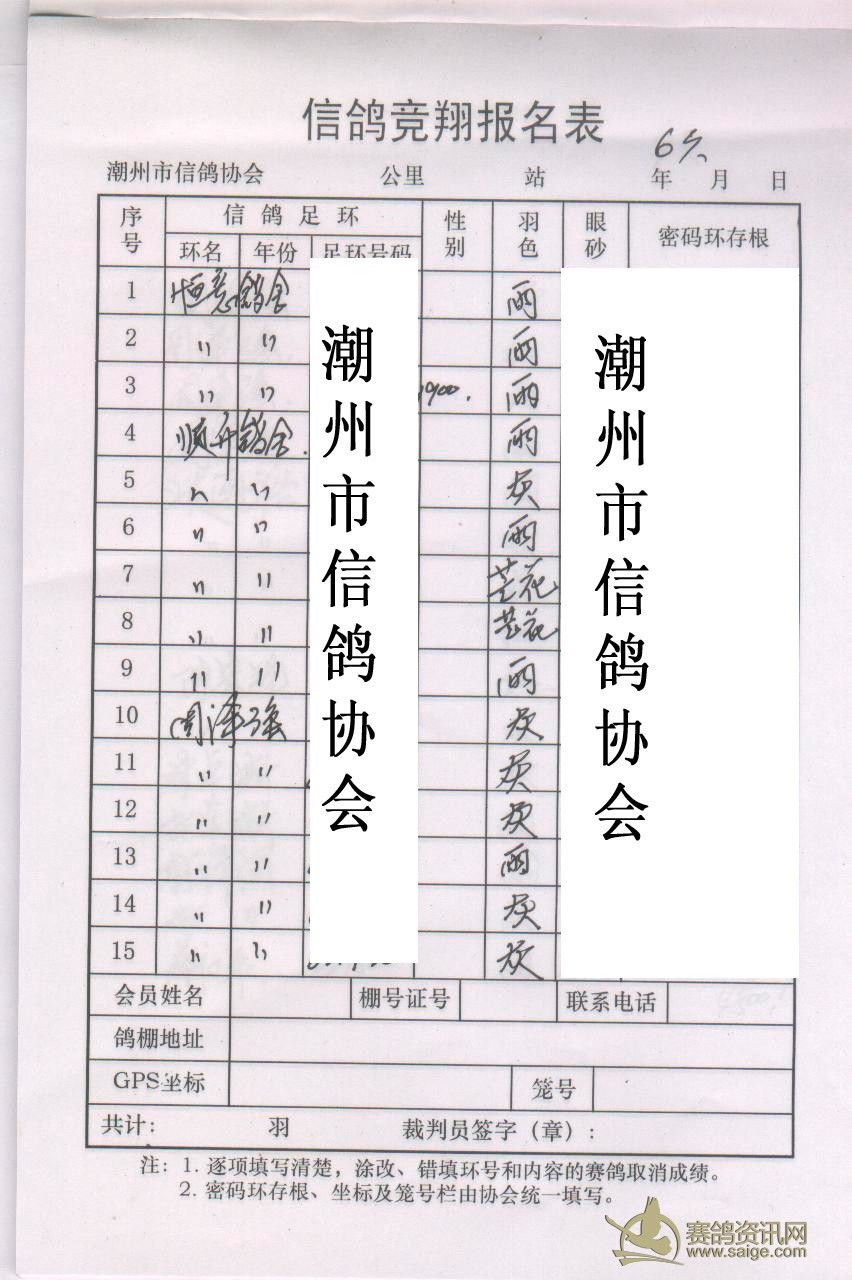 信鸽竞翔报名表
6
潮州市信鸽协会 公里 站 年 月 日
序号 信鸽足环 性别 羽色 眼砂 密码环存根
环名 年份 足环号码
1 恒意鸽舍 雨
2 〃 〃 雨
3 〃 〃 1900. 雨
4 顺升鸽舍 雨
5 〃 〃 灰
6 〃 〃 雨
7 〃 〃 芒花
8 〃 〃 芒花
9 〃 〃 雨
10 周泽强 灰
11 〃 〃 灰
12 〃 〃 灰
13 〃 〃 雨
14 〃 〃 灰
15 〃 〃 灰
潮州市信鸽协会
潮州市信鸽协会
会员姓名 棚号证号 联系电话
鸽棚地址
GPS坐标 笼号
共计: 羽 裁判员签字（章）:
注: 1. 逐项填写清楚，涂改、错填环号和内容的赛鸽取消成绩。
2. 密码环存根、坐标及笼号栏由协会统一填写。
赛鸽资讯网
www.saige.com